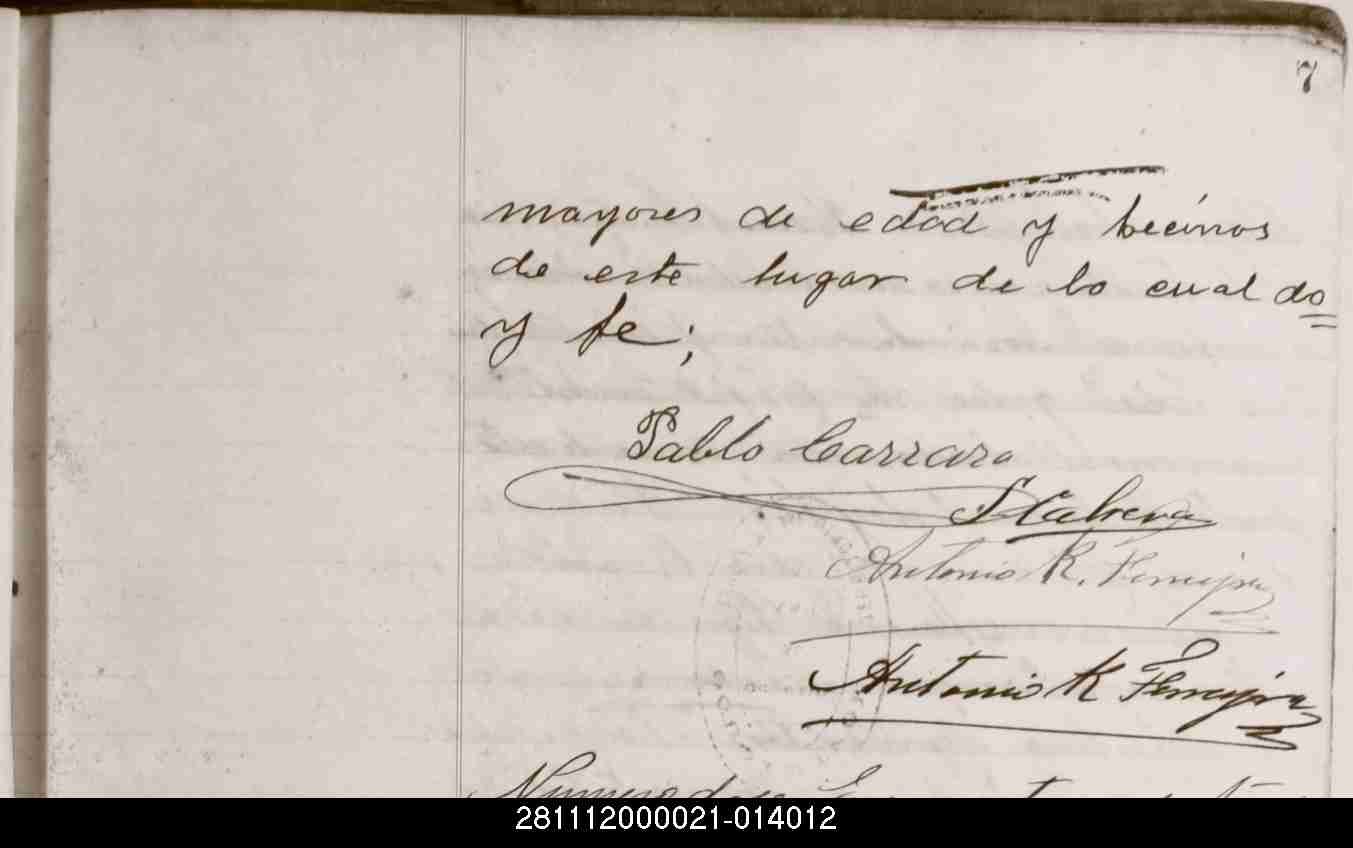 7
mayores de edad y becinos
de este lugar de lo cual do=
y fe;
Pablo Carrara
S Cabrera
Antonio K. Ferreyra
Antonio K Ferreyra
Numero
281112000021-014012